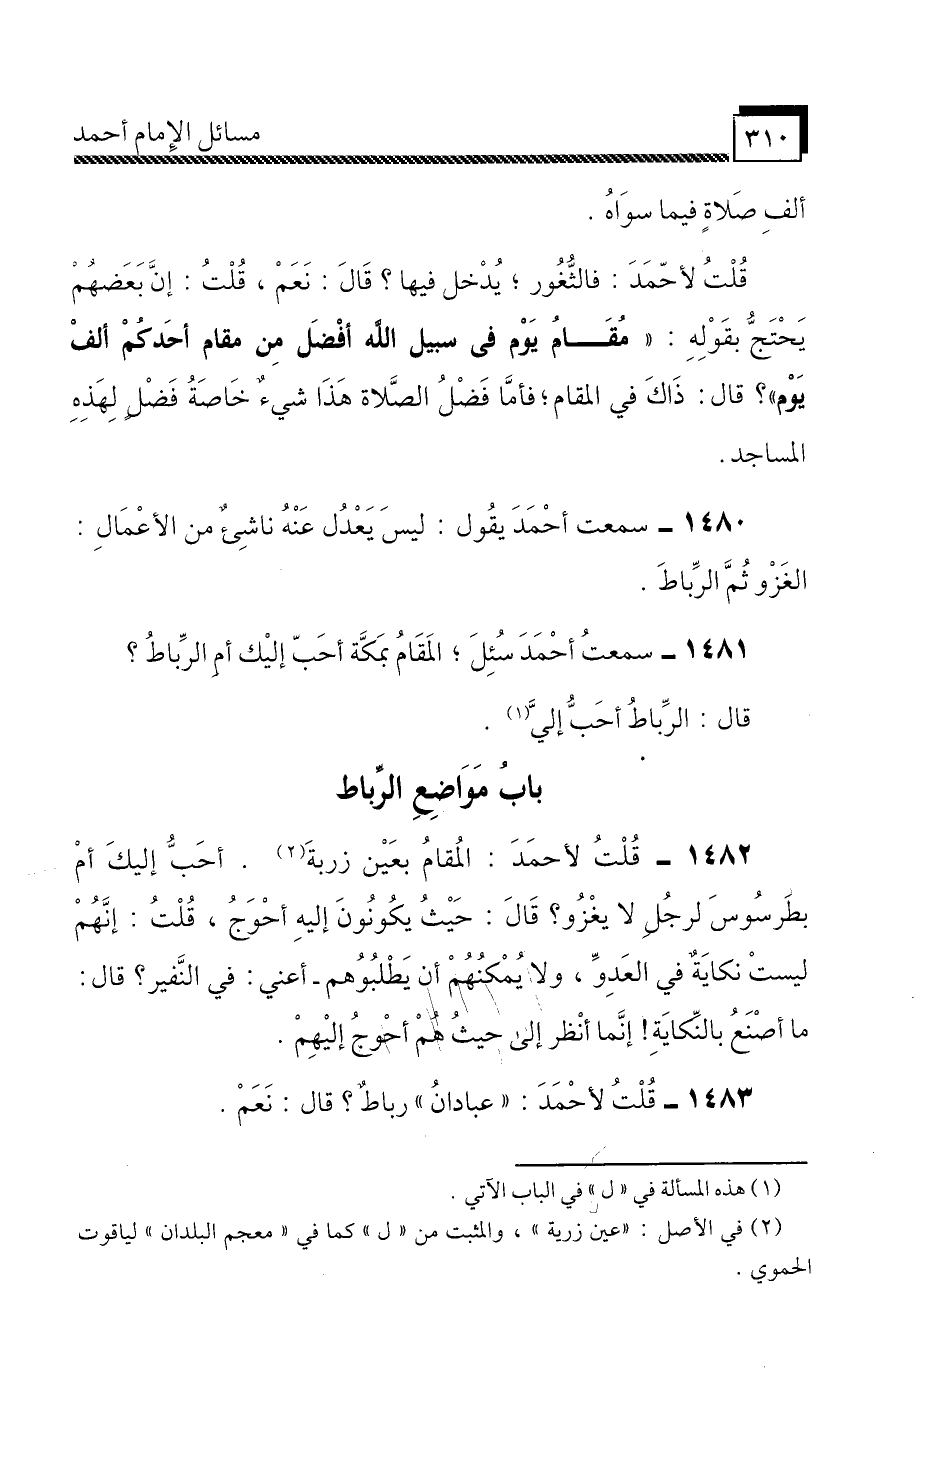 مسائل الإمام أحمد ٣١٠
ألفِ صَلاةٍ فيما سوَاهُ .
قُلْتُ لأحَّمَدَ : فالثُّغُور ؛ يُدْخل فيها ؟ قَالَ : نَعَمْ ، قُلْتُ : إنَّ بَعَضهُمْ
يَحْتَجُّ بقَوْلِهِ : « مُقَـــامُ يَوْم فى سبيل اللَّه أفْضَل مِن مقام أحَدكُمْ ألفْ
يَوْم»؟ قال: ذَاكَ في المقام؛ فأمَّا فَضْلُ الصَّلاة هَذَا شيءٌ خَاصَةُ فَضْلٍ لِهَذِهِ
المساجد .
١٤٨٠ ـ سمعت أحْمَدَ يقُول : ليسَ يَعْدُل عَنْهُ ناشِئٌ من الأعْمَالِ :
الغَزْو ثُمَّ الرِّباطَ .
١٤٨١ ـ سمعتُ أحْمَدَ سُئِلَ ؛ المَقَامُ بمَكَّة أحَبّ إليْك أمِ الرِّباطُ ؟
قال : الرِّباطُ أحَبُّ إليَّ(١) .
بابُ مَوَاضِعِ الرِّباط
١٤٨٢ ـ قُلْتُ لأحمَدَ : المُقامُ بعَيْن زربةَ(٢) . أحَبُّ إليكَ أمْ
بطَرسُوسَ لرجُلِ لا يغْزُو؟ قَالَ : حَيْثُ يكُونُونَ إليه أحْوَجُ ، قُلْتُ : إنَّهُمْ
ليستْ نكايَةٌ في العَدوِّ ، ولا يُمْكنُهُمْ أن يَطْلبُوُهم ـ أعني : في النَّفير؟ قال :
ما أصْنَعُ بالنِّكايَةِ! إنَّما أنْظر إلى حيثُ هُمْ أحْوجُ إليْهِمْ .
١٤٨٣ ـ قُلْتُ لأحْمَدَ : « عبادانُ » رباطٌ ؟ قال : نَعَمْ .
(١) هذه المسألة في « ل » في الباب الآتي .
(٢) في الأصل : «عين زرية » ، والمثبت من « ل » كما في « معجم البلدان » لياقوت
الحموي .